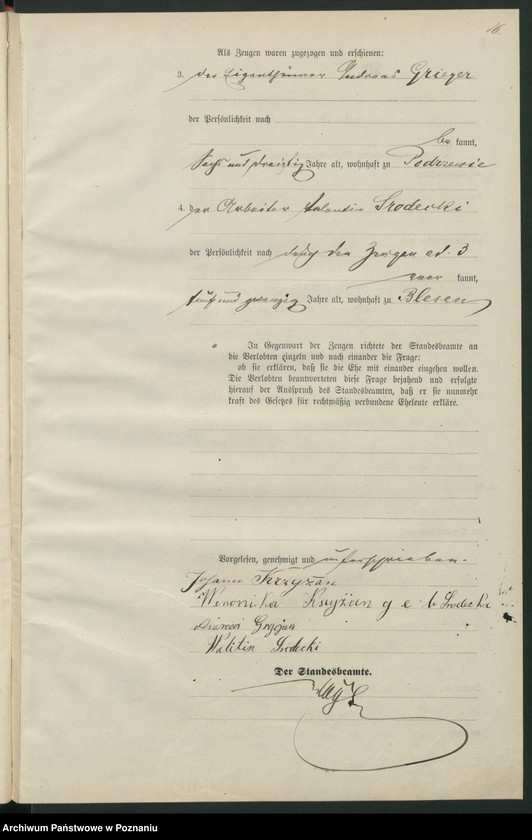 16.
Als Zeugen waren zugezogen und erschienen:
3. der Eigenthümer Andreas Grieger
der Persönlichkeit nach
be kannt,
sechs und dreißig Jahre alt, wohnhaft zu Podrzewie
4. der Arbeiter Valentin Srodecki
der Persönlichkeit nach durch den Zeugen ad. 3
aner kannt,
fünf und zwanzig Jahre alt, wohnhaft zu Blesen
In Gegenwart der Zeugen richtete der Standesbeamte an
die Verlobten einzeln und nach einander die Frage:
ob sie erklären, daß sie die Ehe mit einander eingehen wollen.
Die Verlobten beantworteten diese Frage bejahend und erfolgte
hierauf der Ausspruch des Standesbeamten, daß er sie nunmehr
kraft des Gesetzes für rechtmäßig verbundene Eheleute erkläre.
Vorgelesen, genehmigt und unterschrieben.
Johann Krzyżan
Weronika Ksyżan geb Srodecke
Walitin Srodecki
Der Standesbeamte.
Archiwum Państwowe w Poznaniu